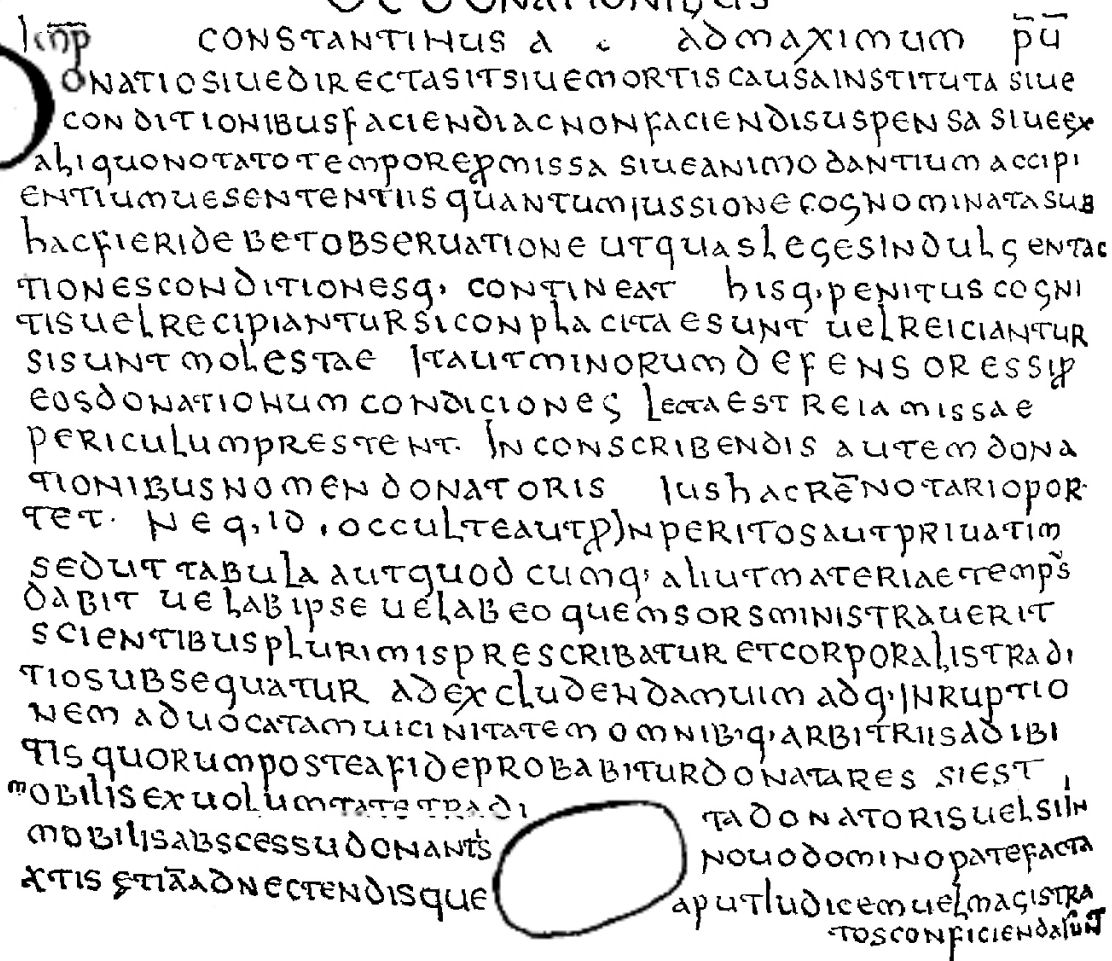 DE DONATIONIBUS
Imp̄p̄ CONSTANTINUS A C ADMAXIMUM p̄ū
DONATIOSIUEDIRECTASITSIUEMORTISCAUSAINSTITUTASIUE
CONDITIONIBUSFACIENDIACNONFACIENDISUSPENSASIUEEX
ALIQUONOTATOTEMPOREꝓMISSASIUEANIMODANTIUMACCIPI
ENTIUMUESENTENTIISQUANTUMIUSSIONECOGNOMINATASUB
HACFIERIDEBETOBSERUATIONEUTQUASLEGESINDULGENTAC
TIONESCONDITIONESQ· CONTINEAT HISQ·PENITUSCOGNI
TISUELRECIPIANTURSICONPLACITAESUNTUELREICIANTUR
SISUNTMOLESTAE ITAUTMINORUMDEFENSORESSIꝑ
EOSDONATIONUMCONDICIONES LECTAESTREIAMISSAE
PERICULUMPRESTENT· INCONSCRIBENDISAUTEMDONA
TIONIBUSNOMENDONATORIS IUSHACRĒNOTARIOPOR·
TET· NEQ·ID·OCCULTEAUTꝑINPERITOSAUTPRIUATIM
SEDUTTABULAAUTQUODCUMQ·ALIUTMATERIAETEMPS̄
DABITUELABIPSEUELABEOQUEMSORSMINISTRAUERIT
SCIENTIBUSPLURIMISPRESCRIBATURETCORPORALISTRADI
TIOSUBSEQUATUR ADEXCLUDENDAMUIMADQ·INRUPTIO
NEMADUOCATAMUICINITATEMOMNIB·Q·ARBITRIISADIBI
TISQUORUMPOSTEAFIDEPROBABITURDONATARESSIEST
MOBILISEXUOLUMTATETRADI TADONATORISUELSIIN
MOBILISABSCESSUDONANTS NOUODOMINOPATEFACTA
XTISETIĀADNECTENDISQUE APUTIUDICEMUELMAGISTRA
TOSCONFICIENDASUNT